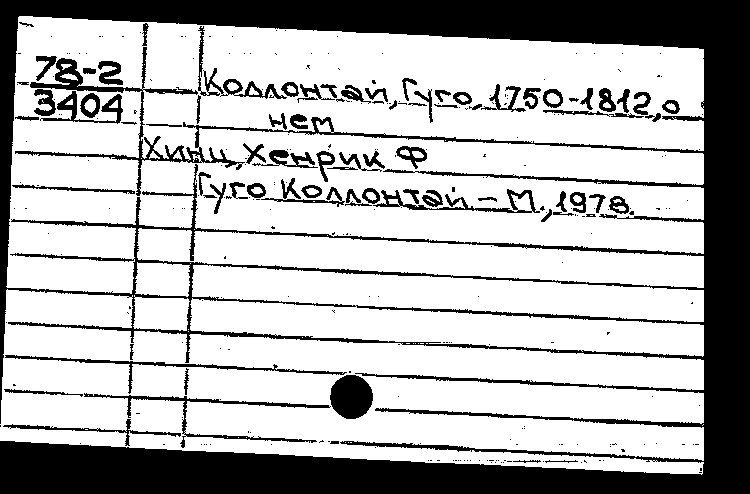 78-2
3404
Коллонтай, Гуго, 1750-1812, о
нем
Хинц, Хенрик Ф
Гуго Коллонтай – М., 1978.